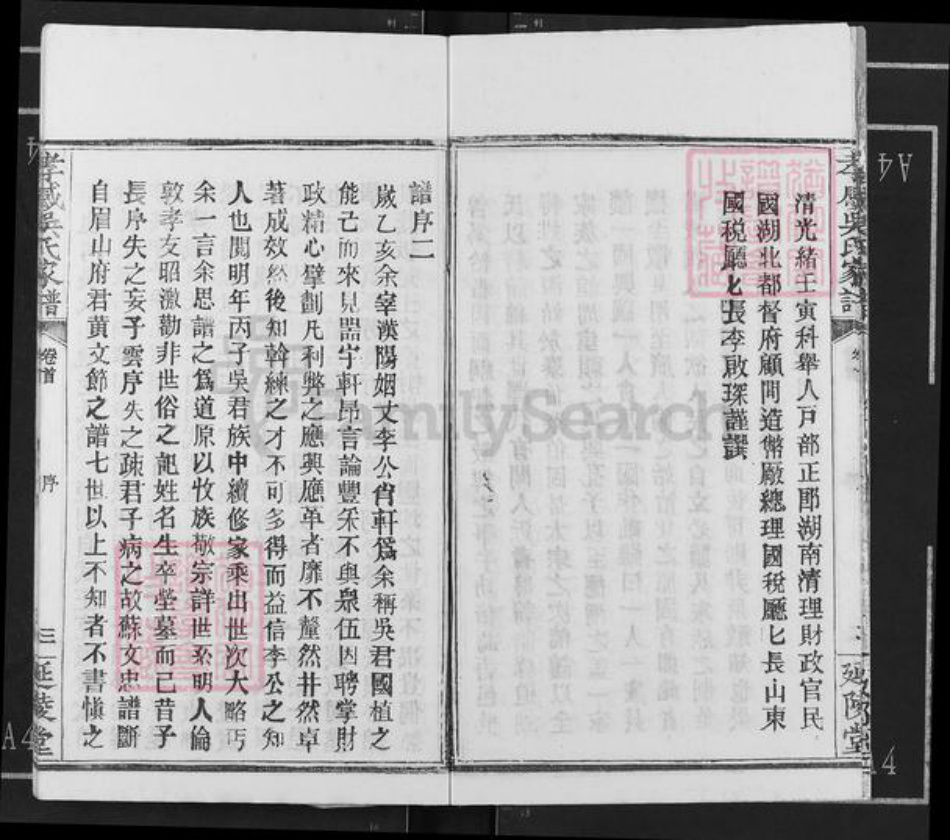 清光緒壬寅科舉人戸部正郎湖南清理財政官民
國湖北都督府顧問造幣廠總理國稅廳匕長山東
國稅廳匕長李啟琛謹譔
孝感吳氏家譜
延陵堂
譜序二
歲乙亥余宰漢陽姻丈李公肖軒爲余稱吳君國植之
能已而來見器宇軒昂言論豐采不與衆伍因聘掌財
政精心擘劃凡利弊之應興應革者靡不釐然井然卓
著成效然後知幹練之才不可多得而益信李公之知
人也閱明年丙子吳君族中續修家乘出世次大略丐
余一言余思譜之爲道原以收族敬宗詳世系明人倫
敦孝友昭激勸非世俗之記姓名生卒塋墓而已昔子
長序失之妄子雲序失之疎君子病之故蘇文忠譜斷
自眉山府君黃文節之譜七世以上不知者不書愼之
孝感吳氏家譜
卷首
序
三
延陵堂
FamilySearch
A4
A4
A4